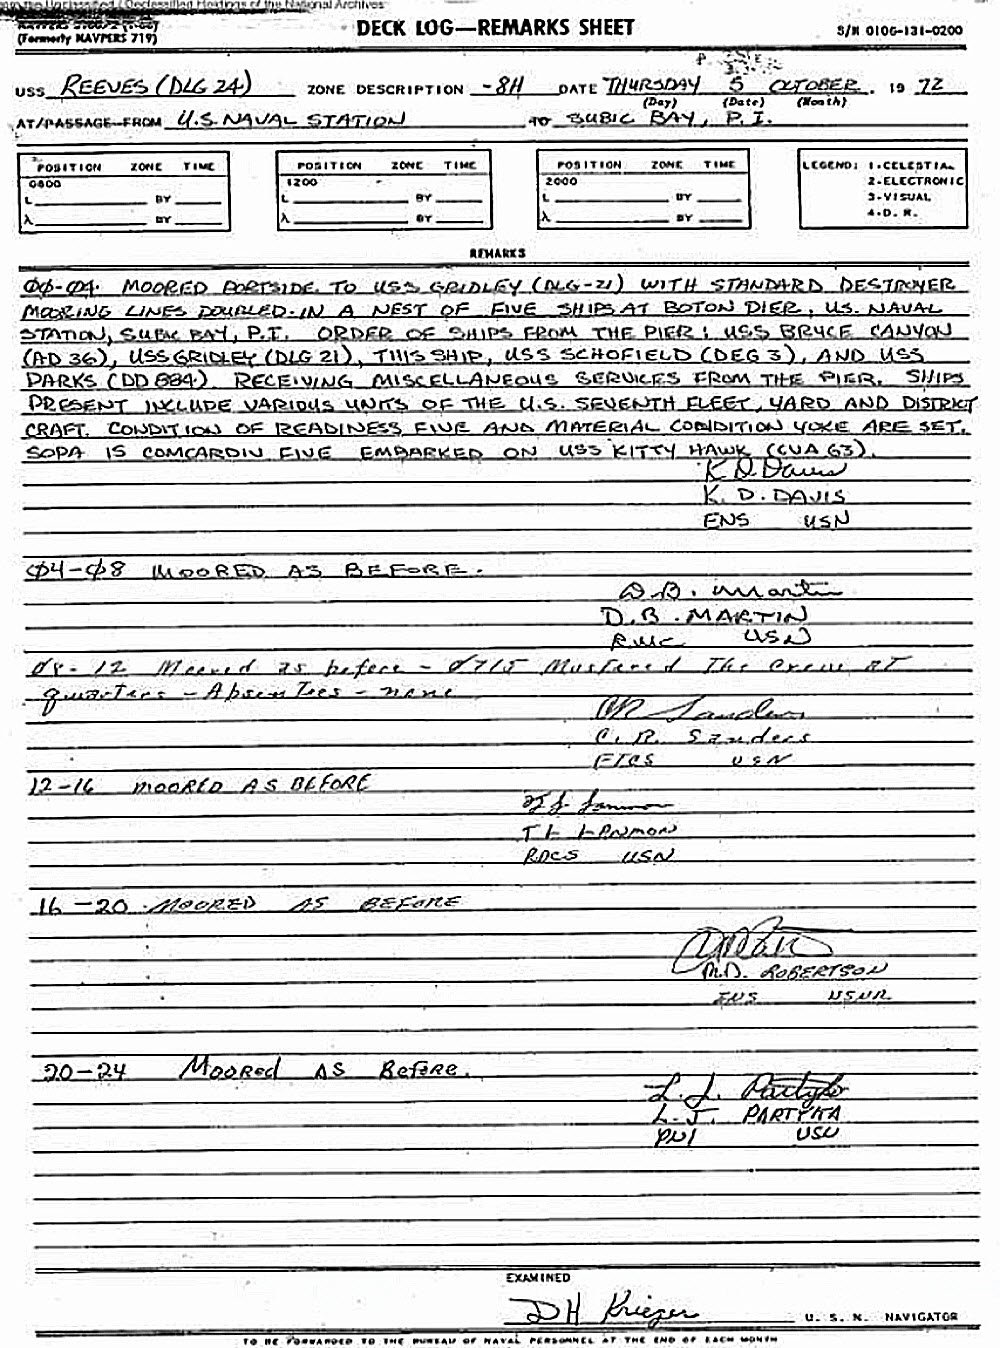 in the Unclassified / Declassified Holdings of the National Archives
(Formerly NAVPERS 719)
DECK LOG—REMARKS SHEET
S/N 0106-131-0200
USS REEVES (DLG 24) ZONE DESCRIPTION -8H DATE THURSDAY 5 OCTOBER, 19 72
(Day) (Date) (Month)
AT/PASSAGE FROM U.S. NAVAL STATION TO SUBIC BAY, P.I.
POSITION ZONE TIME
0800
L BY
λ BY
POSITION ZONE TIME
1200
L BY
λ BY
POSITION ZONE TIME
2000
L BY
λ BY
LEGEND: 1-CELESTIAL
2-ELECTRONIC
3-VISUAL
4-D. R.
REMARKS
00-04. MOORED PORTSIDE TO USS GRIDLEY (DLG-21) WITH STANDARD DESTROYER
MOORING LINES DOUBLED IN A NEST OF FIVE SHIPS AT BOTON PIER, U.S. NAVAL
STATION, SUBIC BAY, P.I. ORDER OF SHIPS FROM THE PIER: USS BRYCE CANYON
(AD 36), USS GRIDLEY (DLG 21), THIS SHIP, USS SCHOFIELD (DEG 3), AND USS
PARKS (DD 884). RECEIVING MISCELLANEOUS SERVICES FROM THE PIER. SHIPS
PRESENT INCLUDE VARIOUS UNITS OF THE U.S. SEVENTH FLEET, YARD AND DISTRICT
CRAFT. CONDITION OF READINESS FIVE AND MATERIAL CONDITION YOKE ARE SET.
SOPA IS COMCARDIV FIVE EMBARKED ON USS KITTY HAWK (CVA 63).
K D Davis
K. D. DAVIS
ENS USN
04-08 MOORED AS BEFORE.
D.B. Martin
D.B. MARTIN
RMC USN
08-12 Moored as before - 0715 Mustered The crew AT
quarters - Absentees - none
CR Sanders
C. R. Sanders
FTCS USN
12-16 MOORED AS BEFORE
T L Lanmon
T L LANMON
RDCS USN
16-20 MOORED AS BEFORE
M.D. ROBERTSON
ENS USNR
20-24 Moored AS Before.
L. J. Partyka
L. J. PARTYKA
PN1 USN
EXAMINED
DH Krieger U. S. N. NAVIGATOR
TO BE FORWARDED TO THE BUREAU OF NAVAL PERSONNEL AT THE END OF EACH MONTH